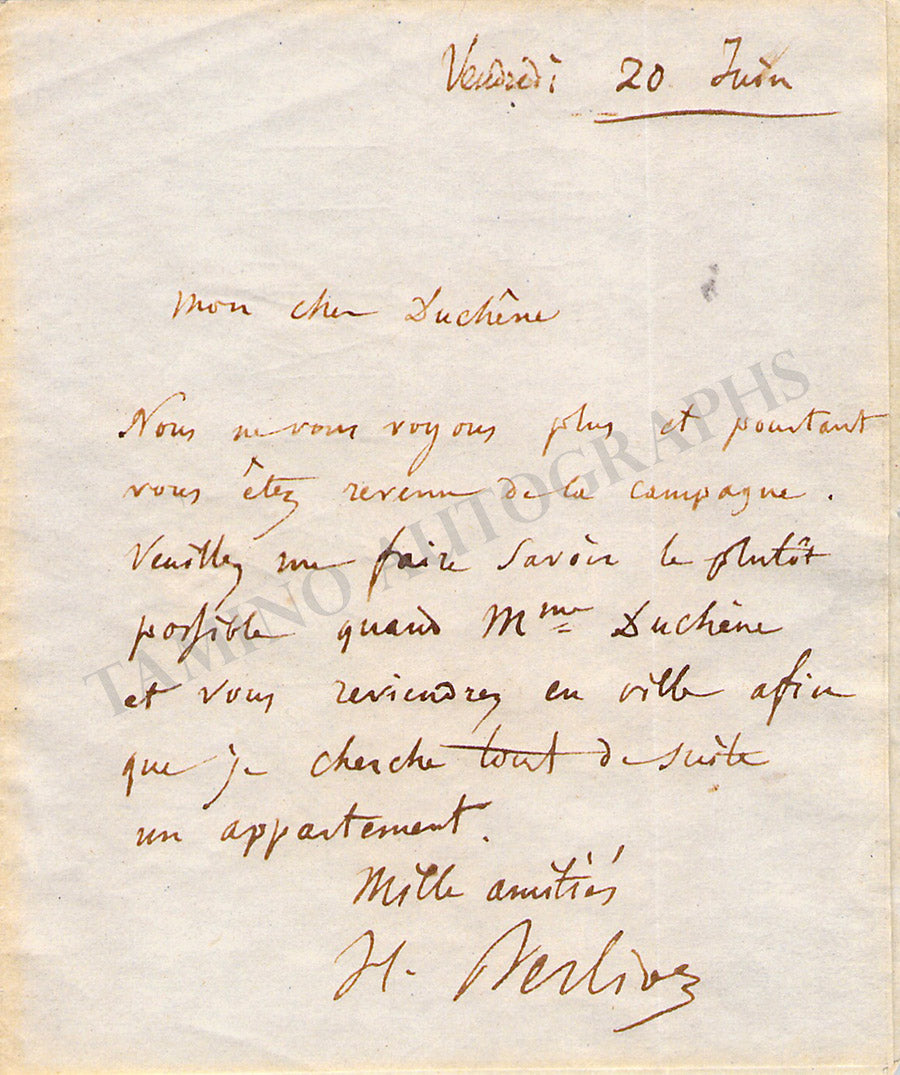 Vendredi 20 Juin
Mon cher Duchêne
Nous ne vous voyons plus et pourtant
vous êtez revenu de la campagne.
Veuillez me faire savoir le plutôt
possible quand Mme Duchêne
et vous reviendrez en ville afin
que je cherche tout de suite
un appartement.
Mille amitiés
H. Berlioz
TAMINO AUTOGRAPHS